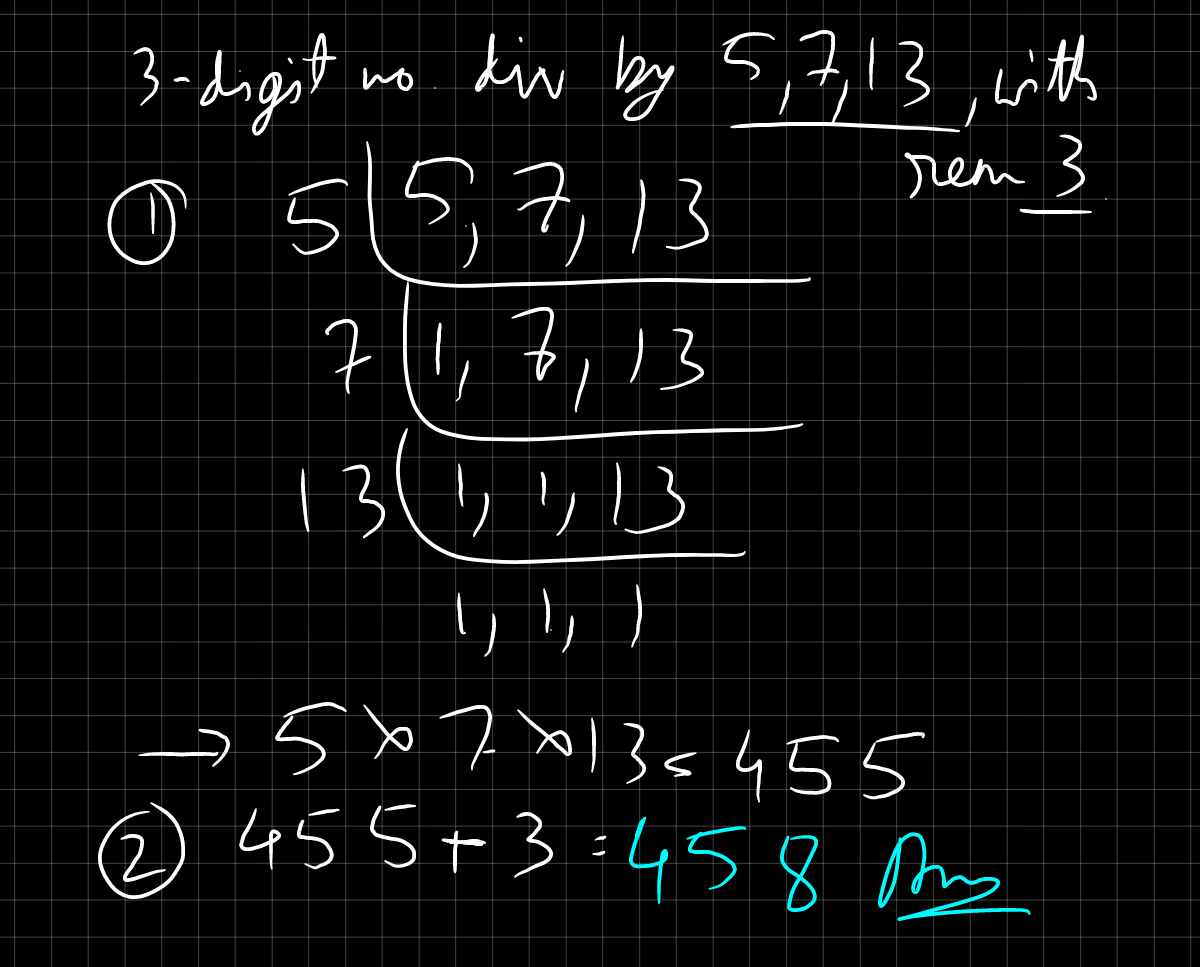 3-digit no. div by 5,7,13, with
rem 3
① 5 5, 7, 13
7 1, 7, 13
13 1, 1, 13
1, 1, 1
→ 5 × 7 × 13 = 455
② 455 + 3 = 458 Ans